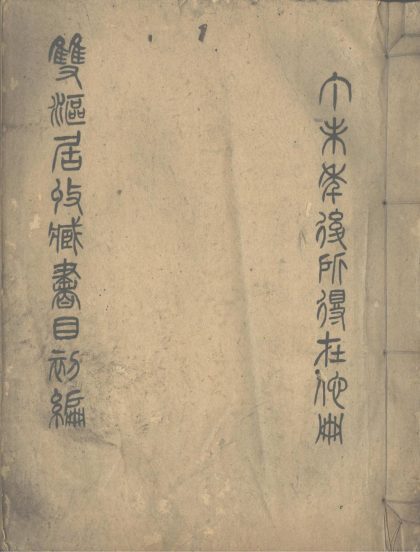 丁未年後所得在他冊
雙漚居收藏書目初編